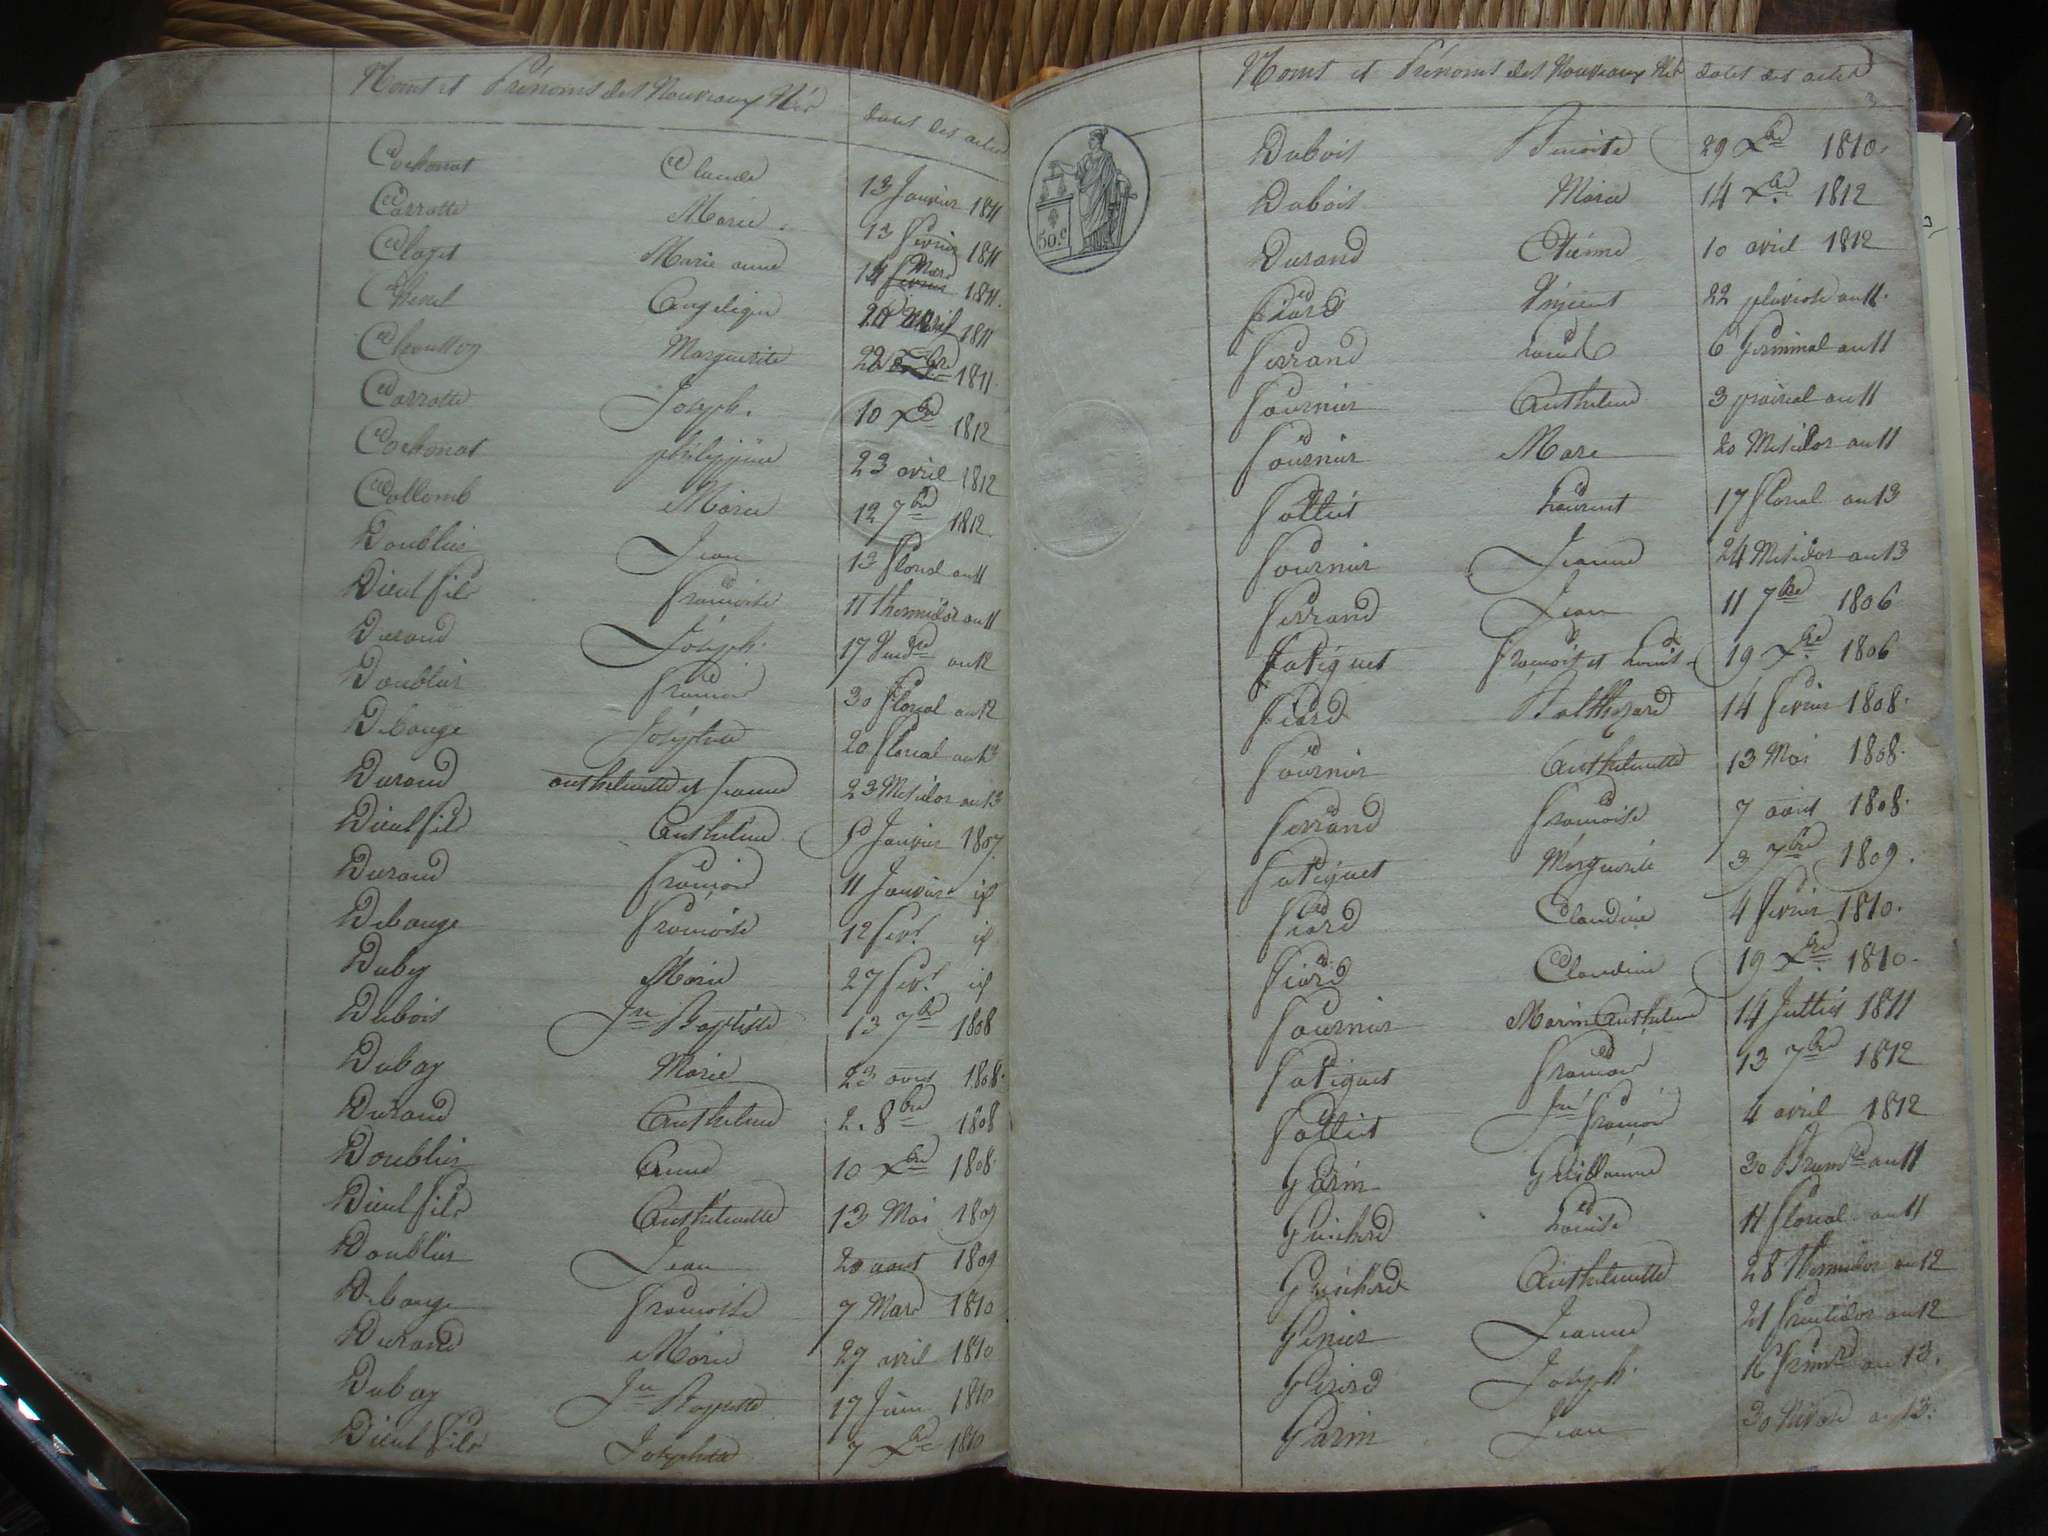 Noms et Prénoms des Nouveaux Nés dates des actes
Carbonat Claude 13 Janvier 1811
Carrotte Marie 13 Fevrier 1811
Clozet Marie anne 14 Mars 1811
Chenel Angelique 1811
Marguerite 22 1811
Carrotte Joseph. 10 Xbre 1812
Carbonat philippine 23 avril 1812
Collomb Marie 12 7bre 1812
Doublier Jean 13 floreal an 11
Dieul fils francoise 11 thermidor an 11
Durand Joseph 17 Vendre an 12
Doublier francois 30 floreal an 12
Debauge Josephte 20 floreal an 13
Durand anthelmette et Jeanne 23 Messidor an 13
Dieul fils Anthelme Janvier 1807
Durand francois 11 Janvier id
Debauge francoise 12 fevr. id
Duby Marie 27 fevr. id
Dubois Jn Baptiste 13 7bre 1808
Dubay Marie 23 aout 1808
Durand Anthelme 2. 8bre 1808
Doublier Anne 10 Xbre 1808
Dieul fils Anthelmette 13 Mai 1809
Doublier Jean 20 aout 1809
Debauge francoise 7 Mars 1810
Durand Marie 27 avril 1810
Dubay Jn Baptiste 17 Juin 1810
Dieul fils Josephte 7 Xbre 1810
Noms et Prénoms des Nouveaux Nés dates des actes
3
50 c
Dubois Benoite 29 Xbre 1810
Dubois Marie 14 Xbre 1812
Durand Etienne 10 avril 1812
Fiard Vincent 22 pluviose an 11
Ferrand Louis 6 Germinal an 11
Fournier Anthelme 3 prairial an 11
Fournier Marc 20 Messidor an 11
Follier Laurent 17 floreal an 13
Fournier Jeanne 24 Messidor an 13
Ferrand Jean 11 7bre 1806
Fatiguet Francois et Louis 19 Xbre 1806
Fiard Balthazard 14 Fevrier 1808
Fournier Anthelmette 13 Mai 1808
Ferrand Francoise 7 aout 1808
Fatiguet Marguerite 3 7bre 1809
Fiard Claudine 4 fevrier 1810
Fiard Claudine 19 Xbre 1810
Fournier Marin Anthelme 14 Juillet 1811
Fatiguet Francois 13 7bre 1812
Follier Jn Francois 4 avril 1812
Garin Guillaume 30 Brumre an 11
Guichard Louise 11 floreal an 11
Guichard Anthelmette 28 thermidor an 12
Genier Jeanne 21 fructidor an 12
Girard Joseph 16 frimre an 13.
Garin Jean 30 Nivose an 13.